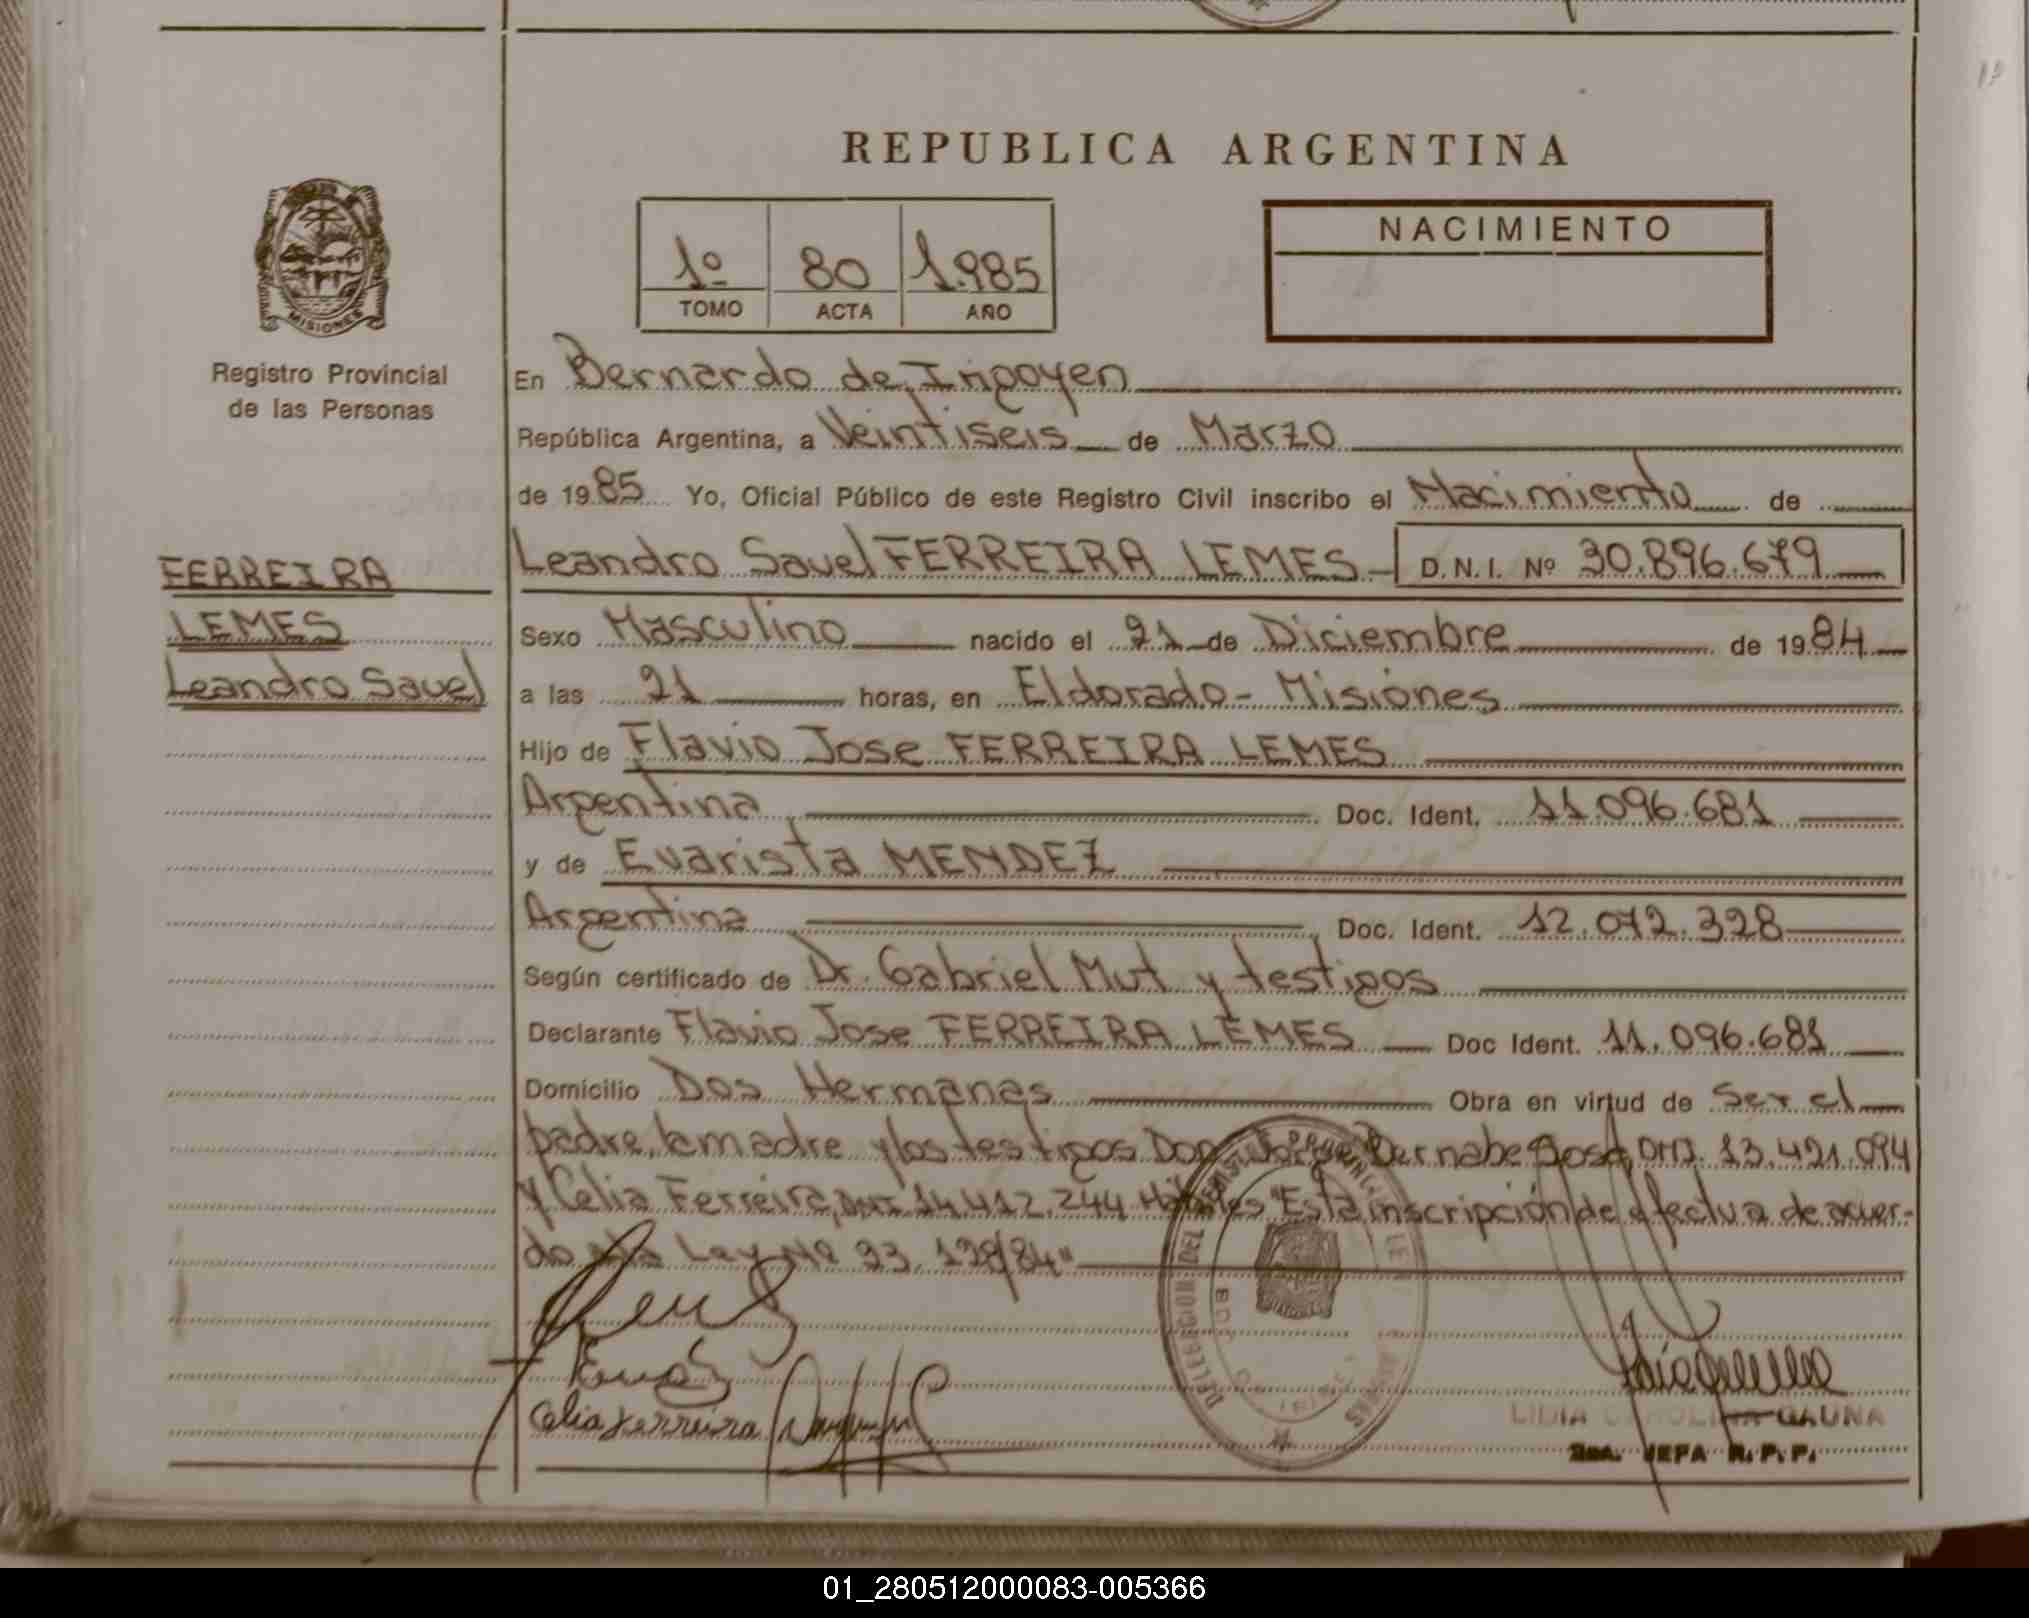 REPUBLICA ARGENTINA
MISIONES
Registro Provincial
de las Personas
1º 80 1.985
TOMO ACTA AÑO
NACIMIENTO
En Bernardo de Irigoyen
República Argentina, a Veintiseis de Marzo
de 1985 Yo, Oficial Público de este Registro Civil inscribo el Nacimiento de
Leandro Sauel FERREIRA LEMES D.N.I. Nº 30.896.679
FERREIRA
LEMES
Leandro Sauel
Sexo Masculino nacido el 21 de Diciembre de 1984
a las 21 horas, en Eldorado - Misiones
Hijo de Flavio Jose FERREIRA LEMES
Argentina Doc. Ident. 11.096.681
y de Evarista MENDEZ
Argentina Doc. Ident. 12.072.328
Según certificado de Dr. Gabriel Mut y testigos
Declarante Flavio Jose FERREIRA LEMES Doc Ident. 11.096.681
Domicilio Dos Hermanas Obra en virtud de Ser el
padre, la madre y los testigos Don Jorge Bernabe DNI. 13.421.094
y Celia Ferreira, DNI 14.412.244 Hábiles "Esta inscripción de efectua de acuer-
do a la Ley Nº 23.128/84"
Celia Ferreira
DELEGACION DEL
LIDIA CAROLINA GAUNA
2da. JEFA R.P.P.
01_280512000083-005366